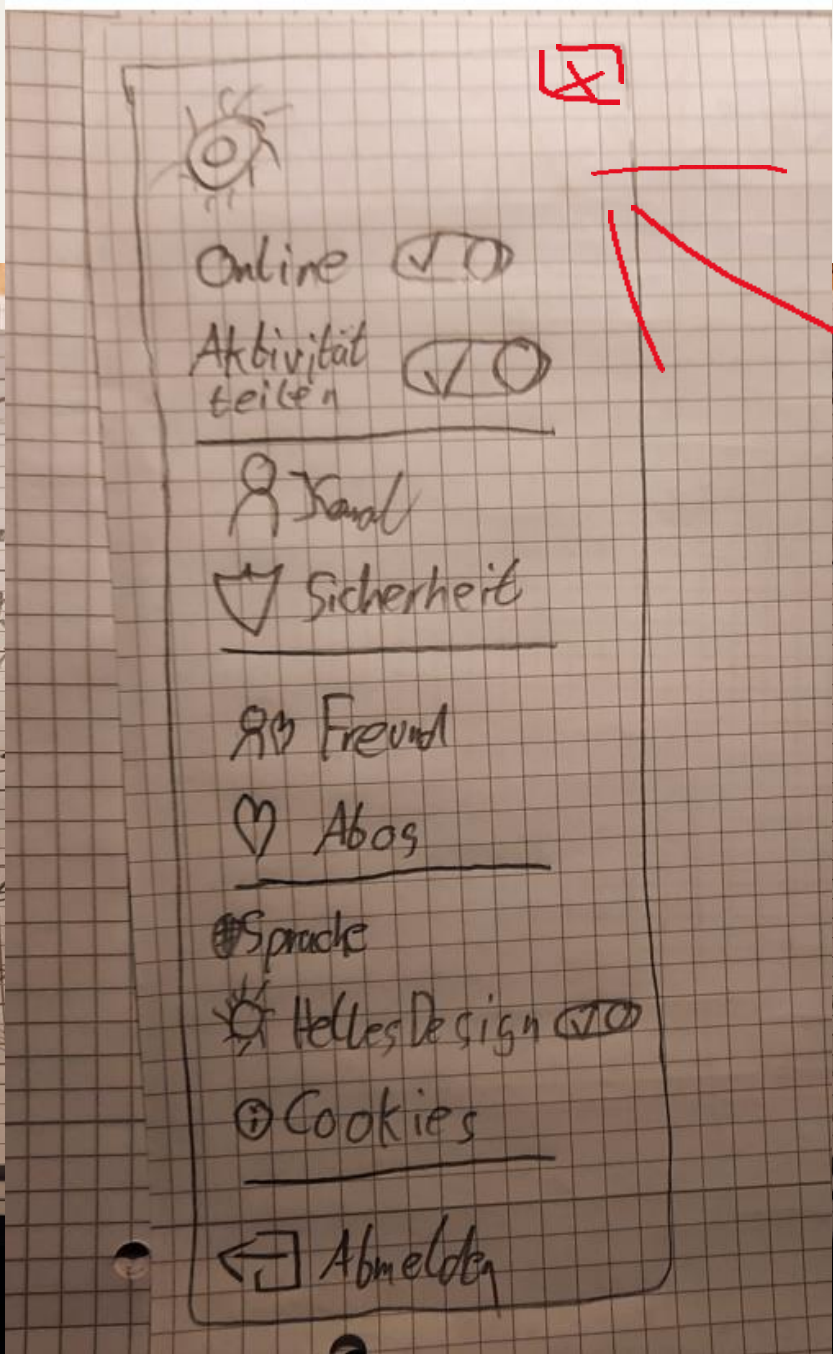 Online
Aktivität
teilen
Kanal
Sicherheit
Freund
Abos
Sprache
Helles Design
Cookies
Abmelden